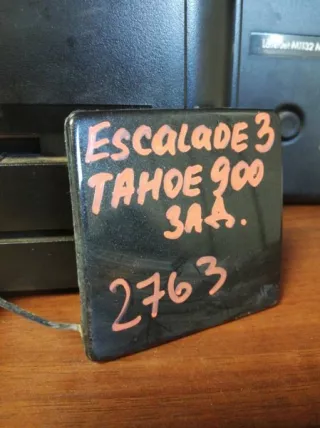 LaserJet M1132 M
ESCALADE 3
TAHOE 900
ЗАД.
2763